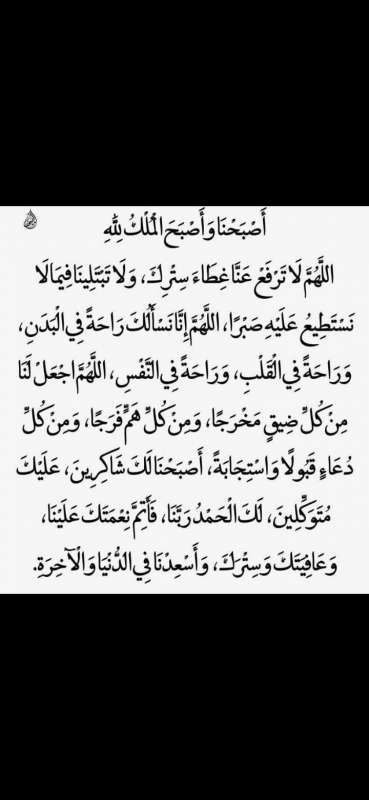 أَصْبَحْنَا وَأَصْبَحَ الْمُلْكُ لِلَّهِ
اللَّهُمَّ لَا تَرْفَعْ عَنَّا غِطَاءَ سِتْرِكَ، وَلَا تَبْتَلِينَا فِيمَا لَا
نَسْتَطِيعُ عَلَيْهِ صَبْرًا، اللَّهُمَّ إِنَّا نَسْأَلُكَ رَاحَةً فِي الْبَدَنِ،
وَرَاحَةً فِي الْقَلْبِ، وَرَاحَةً فِي النَّفْسِ، اللَّهُمَّ اجْعَلْ لَنَا
مِنْ كُلِّ ضِيقٍ مَخْرَجًا، وَمِنْ كُلِّ هَمٍّ فَرَجًا، وَمِنْ كُلِّ
دُعَاءٍ قَبُولًا وَاسْتِجَابَةً، أَصْبَحْنَا لَكَ شَاكِرِينَ، عَلَيْكَ
مُتَوَكِّلِينَ، لَكَ الْحَمْدُ رَبَّنَا، فَأَتِمَّ نِعْمَتَكَ عَلَيْنَا،
وَعَافِيَتَكَ وَسِتْرَكَ، وَأَسْعِدْنَا فِي الدُّنْيَا وَالْآخِرَةِ.